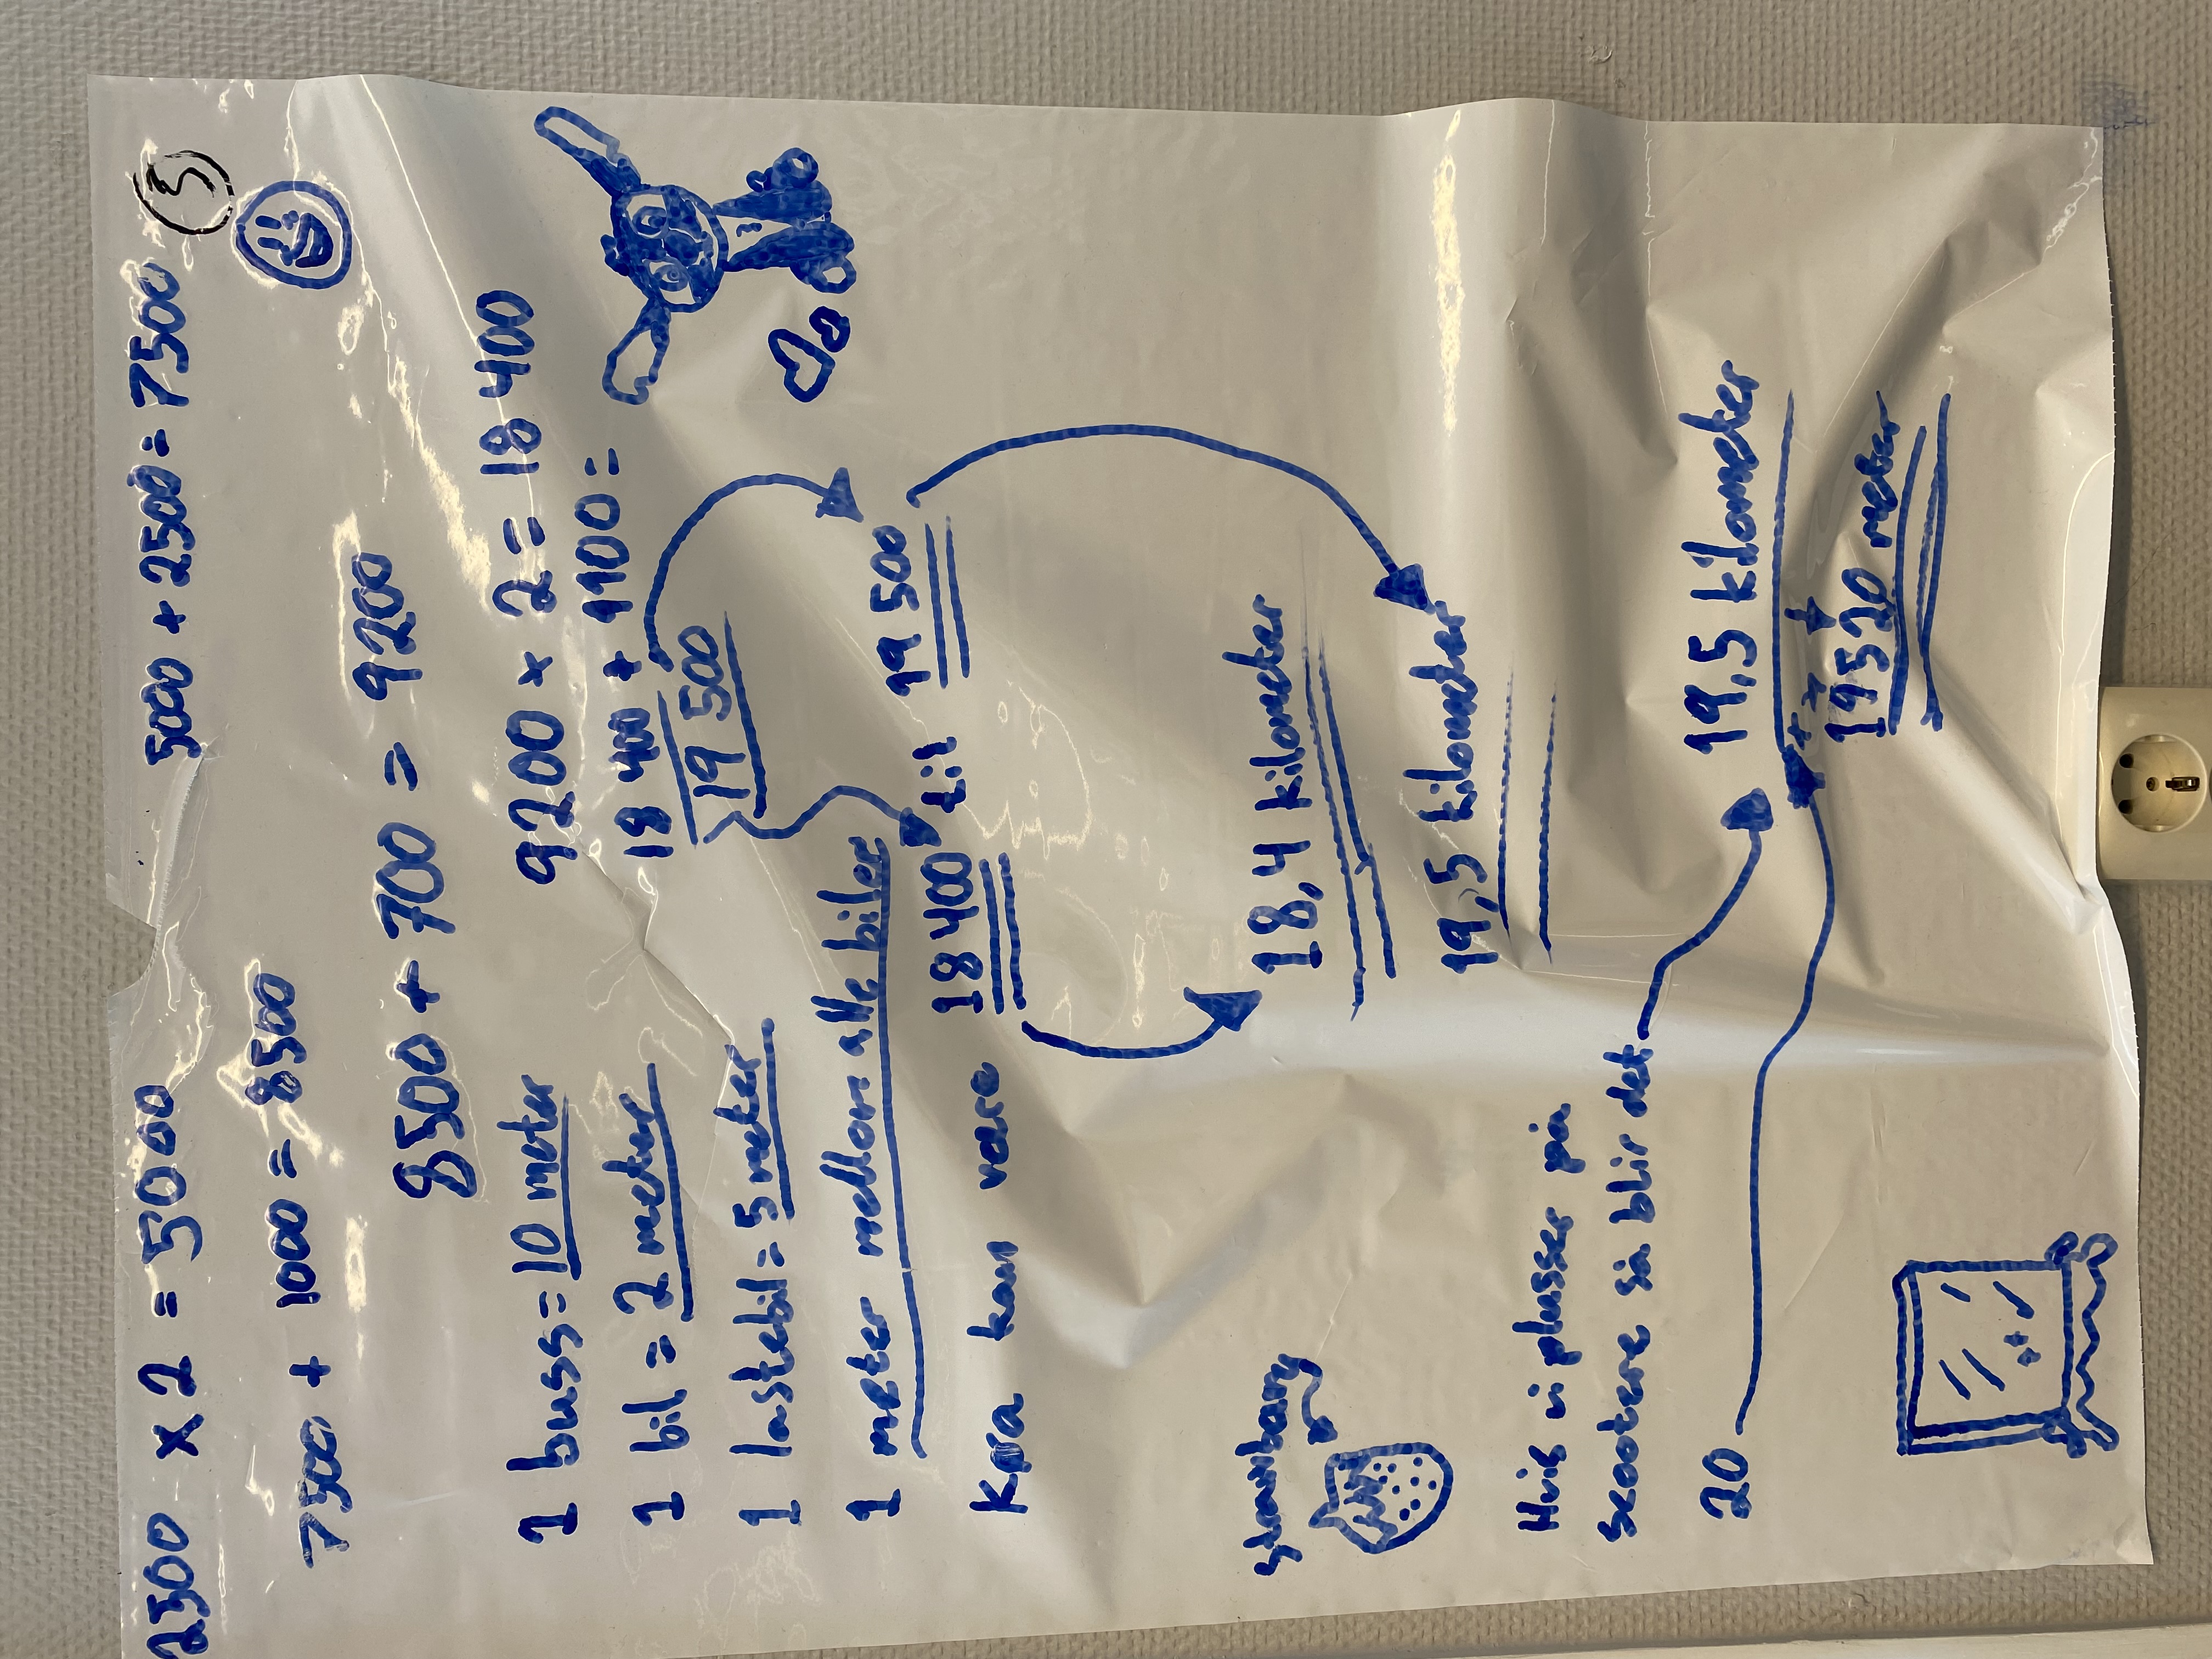 2500 x 2 = 5000    5000 + 2500 = 7500    5
7500 + 1000 = 8500
8500 + 700 = 9200
1 buss = 10 meter    9200 x 2 = 18 400
1 bil = 2 meter    18 400 + 1100 =
1 lastebil = 5 meter    19 500
1 meter mellom alle biler
Køa kan være 18 400 til 19 500
18,4 kilometer
19,5 kilometer
Hvis vi plusser på
scootere så blir det    19,5 kilometer
20    19 520 meter